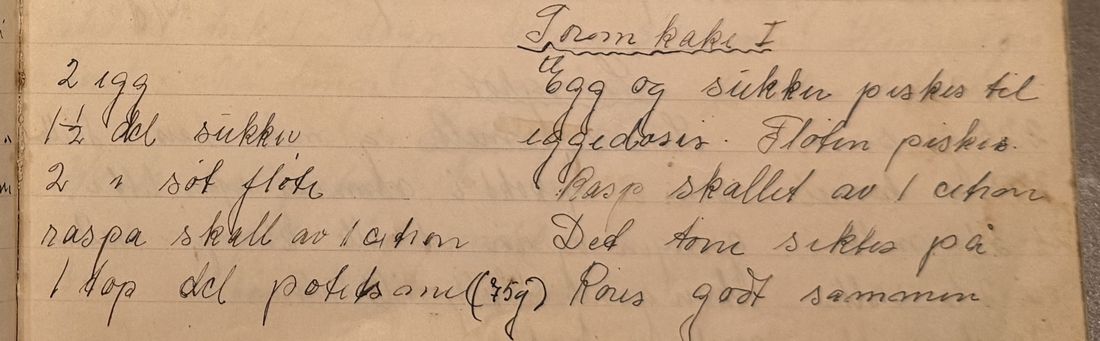 kake I
2 egg
1½ del sukker
2 " søt fløte
raspa skall av 1 citron
1 top del (75g)
Egg og sukker piskes til
eggedosis. Fløten piskes.
Rasp skallet av 1 citron
Det tørre siktes på
Røres godt sammen